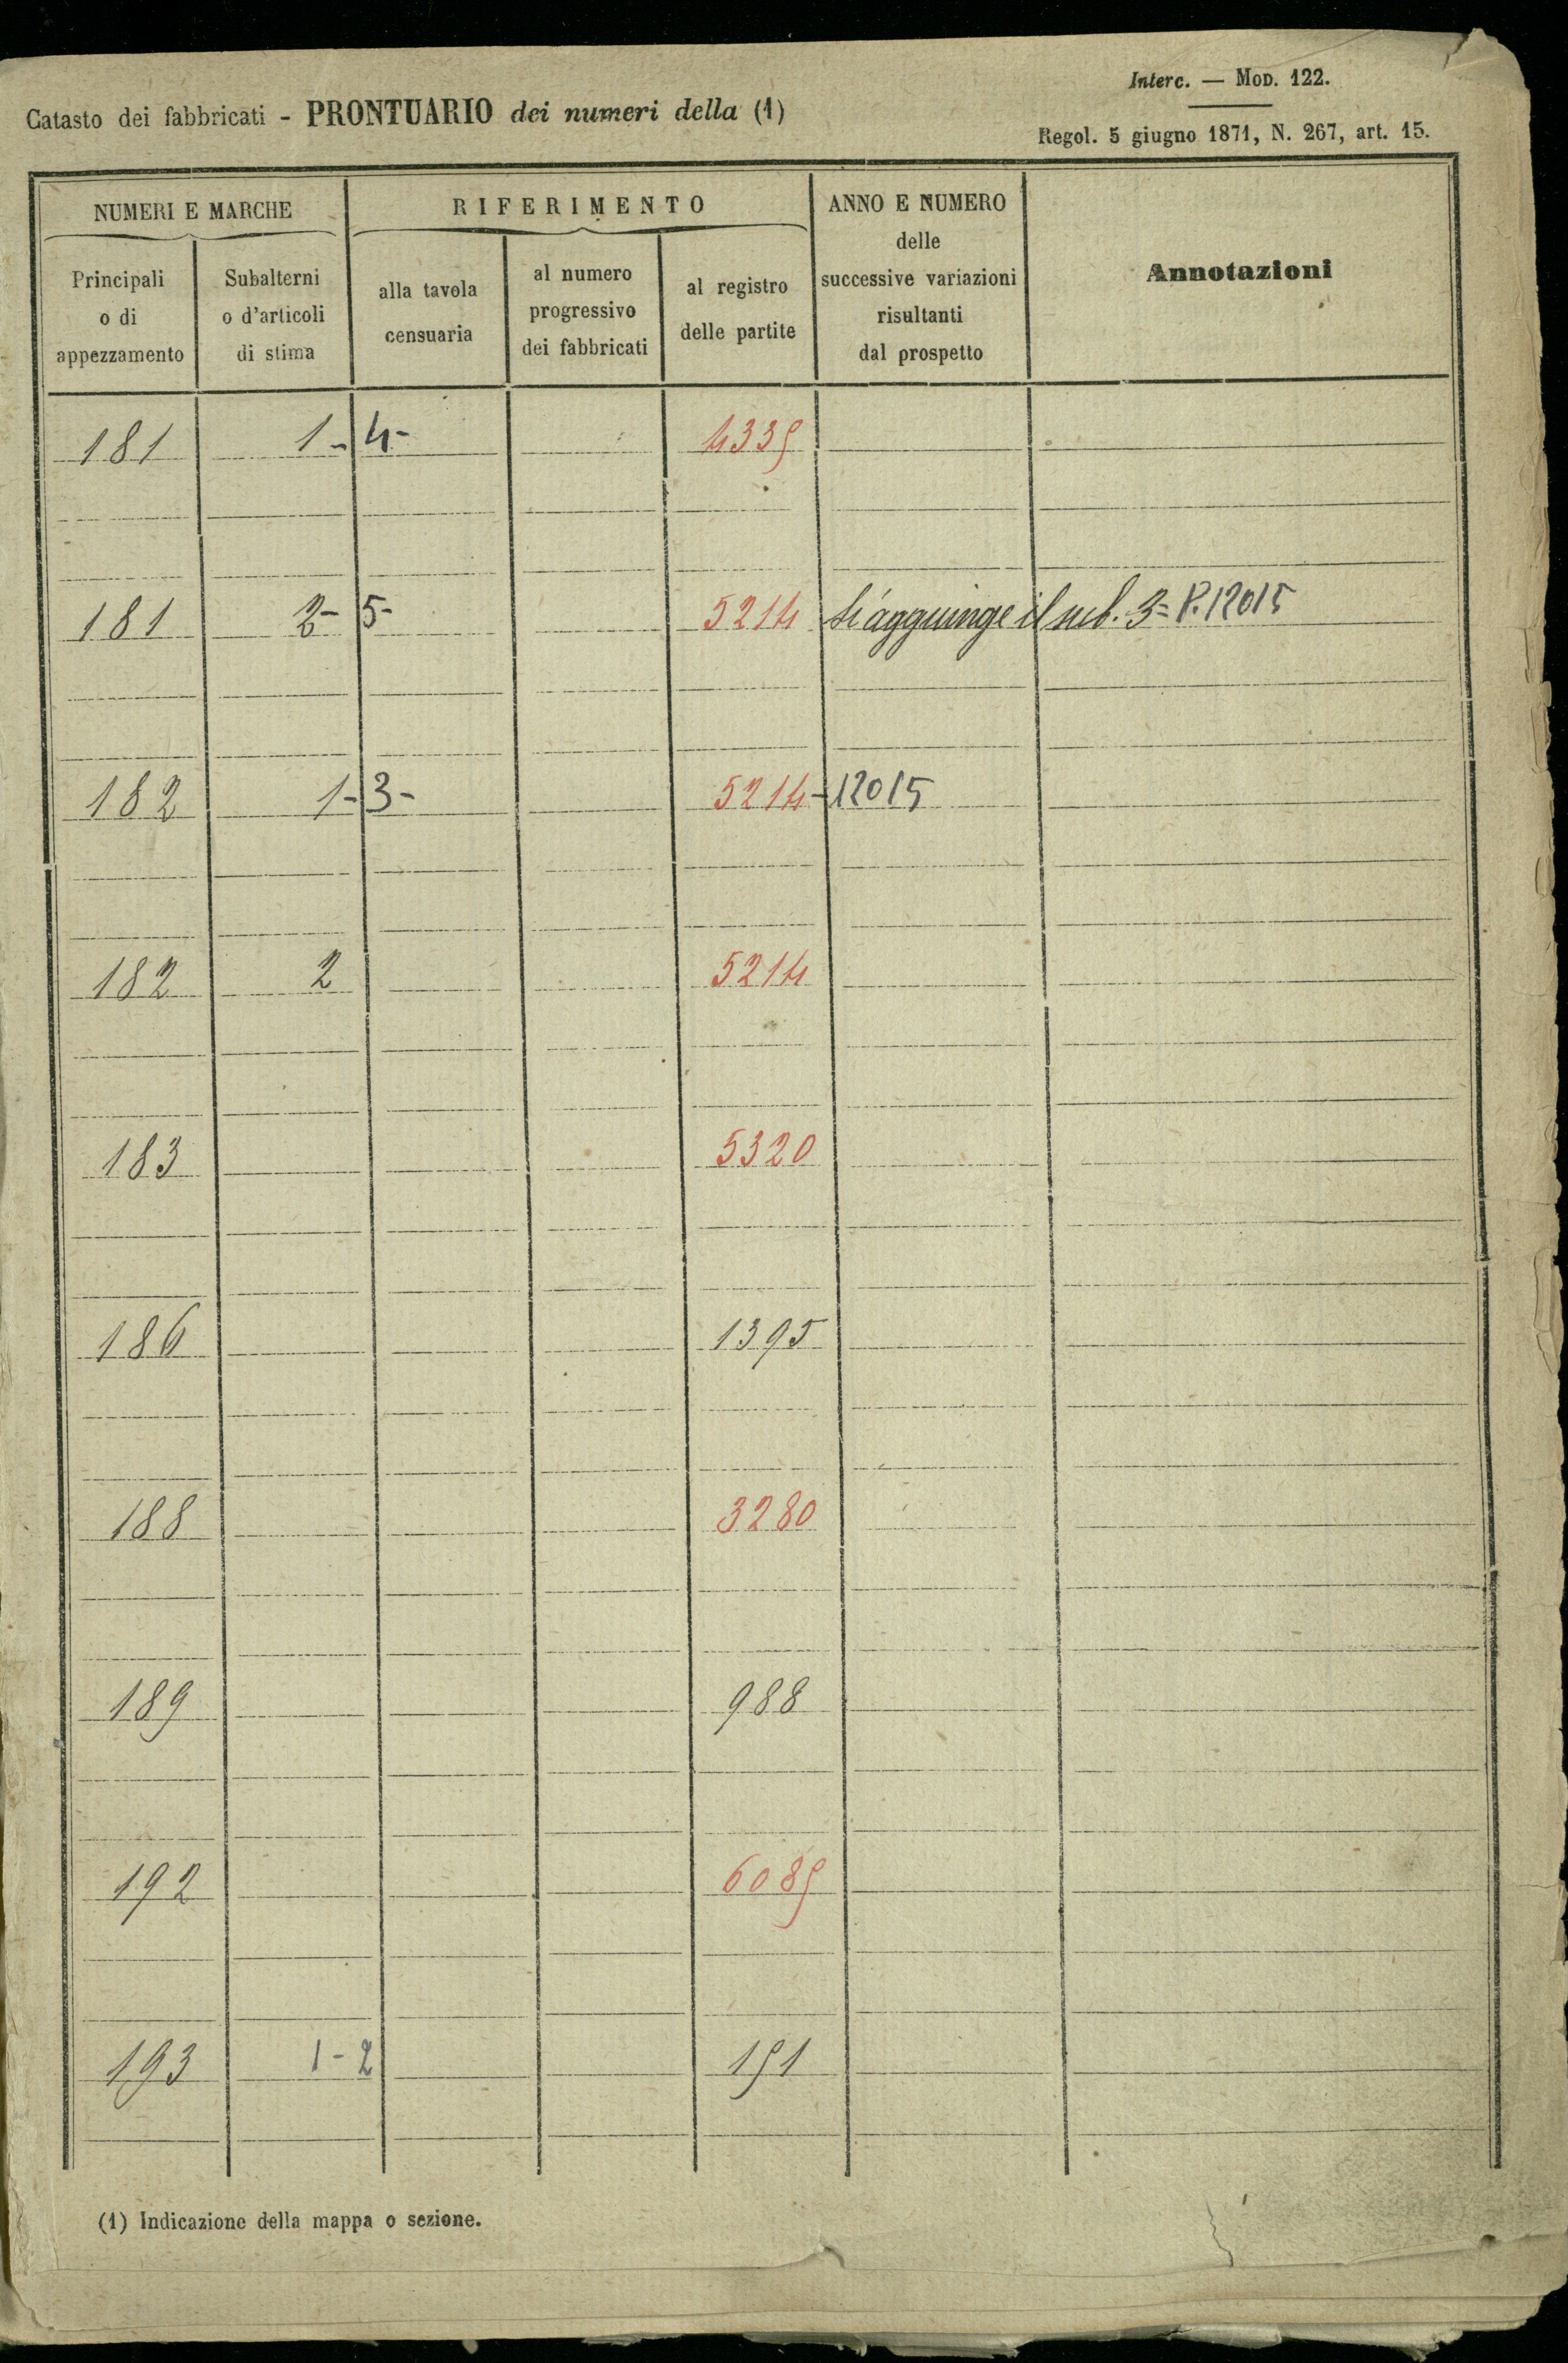 Interc. — MOD. 122.
Catasto dei fabbricati - PRONTUARIO dei numeri della (1)
Regol. 5 giugno 1871, N. 267, art. 15.
NUMERI E MARCHE
RIFERIMENTO
ANNO E NUMERO
delle
successive variazioni
risultanti
dal prospetto
Annotazioni
Principali
o di
appezzamento
Subalterni
o d'articoli
di stima
alla tavola
censuaria
al numero
progressivo
dei fabbricati
al registro
delle partite
181 1-4- 4335
181 2-5- 5214 Si agguinge il sub. 3= P. 12015
182 1-3- 5214-12015
182 2 5214
183 5320
186 1395
188 3280
189 988
192 6085
193 1-2 151
(1) Indicazione della mappa o sezione.